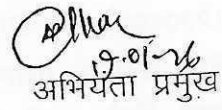 19-01-26
अभियंता प्रमुख